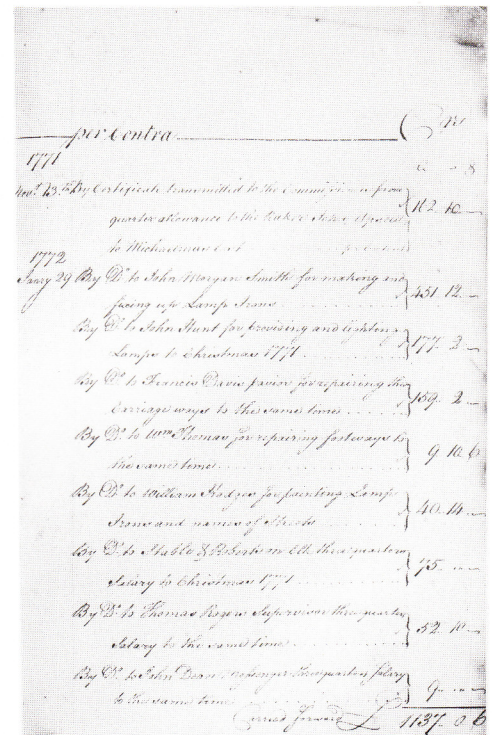 per Contra Cr
1771
Novr. 23. By Certificate transmitted to the Commissioners from
quarter allowance to the 112. 10. —
to Michaelmas
1772
Janry 29 By Do. to John Morgan Smith for making and
fixing up Lamp Irons . . . . 451. 12. —
By Do. to John Hunt for providing and lighting
Lamps to Christmas 1771 . . . . 177. 3 —
By Do. to Francis Davis pavior for repairing the
Carriage ways to the same time . . . . 159. 2 —
By Do. to Wm Thomas for repairing footways to
the same time . . . . 9. 10. 6
By Do. to William for painting Lamp
Irons and names of Streets . . . . 40. 14. —
By Do. to Stable & Robertson Clk three quarters
Salary to Christmas 1771 . . . . 75. — —
By Do. to Thomas Rogers Supervisor three quarters
Salary to the same time . . . . 52. 10 —
By Do. to John Messenger three quarters Salary
to the same time . . . . 9. — —
Carried forward £ 1137. 0 6